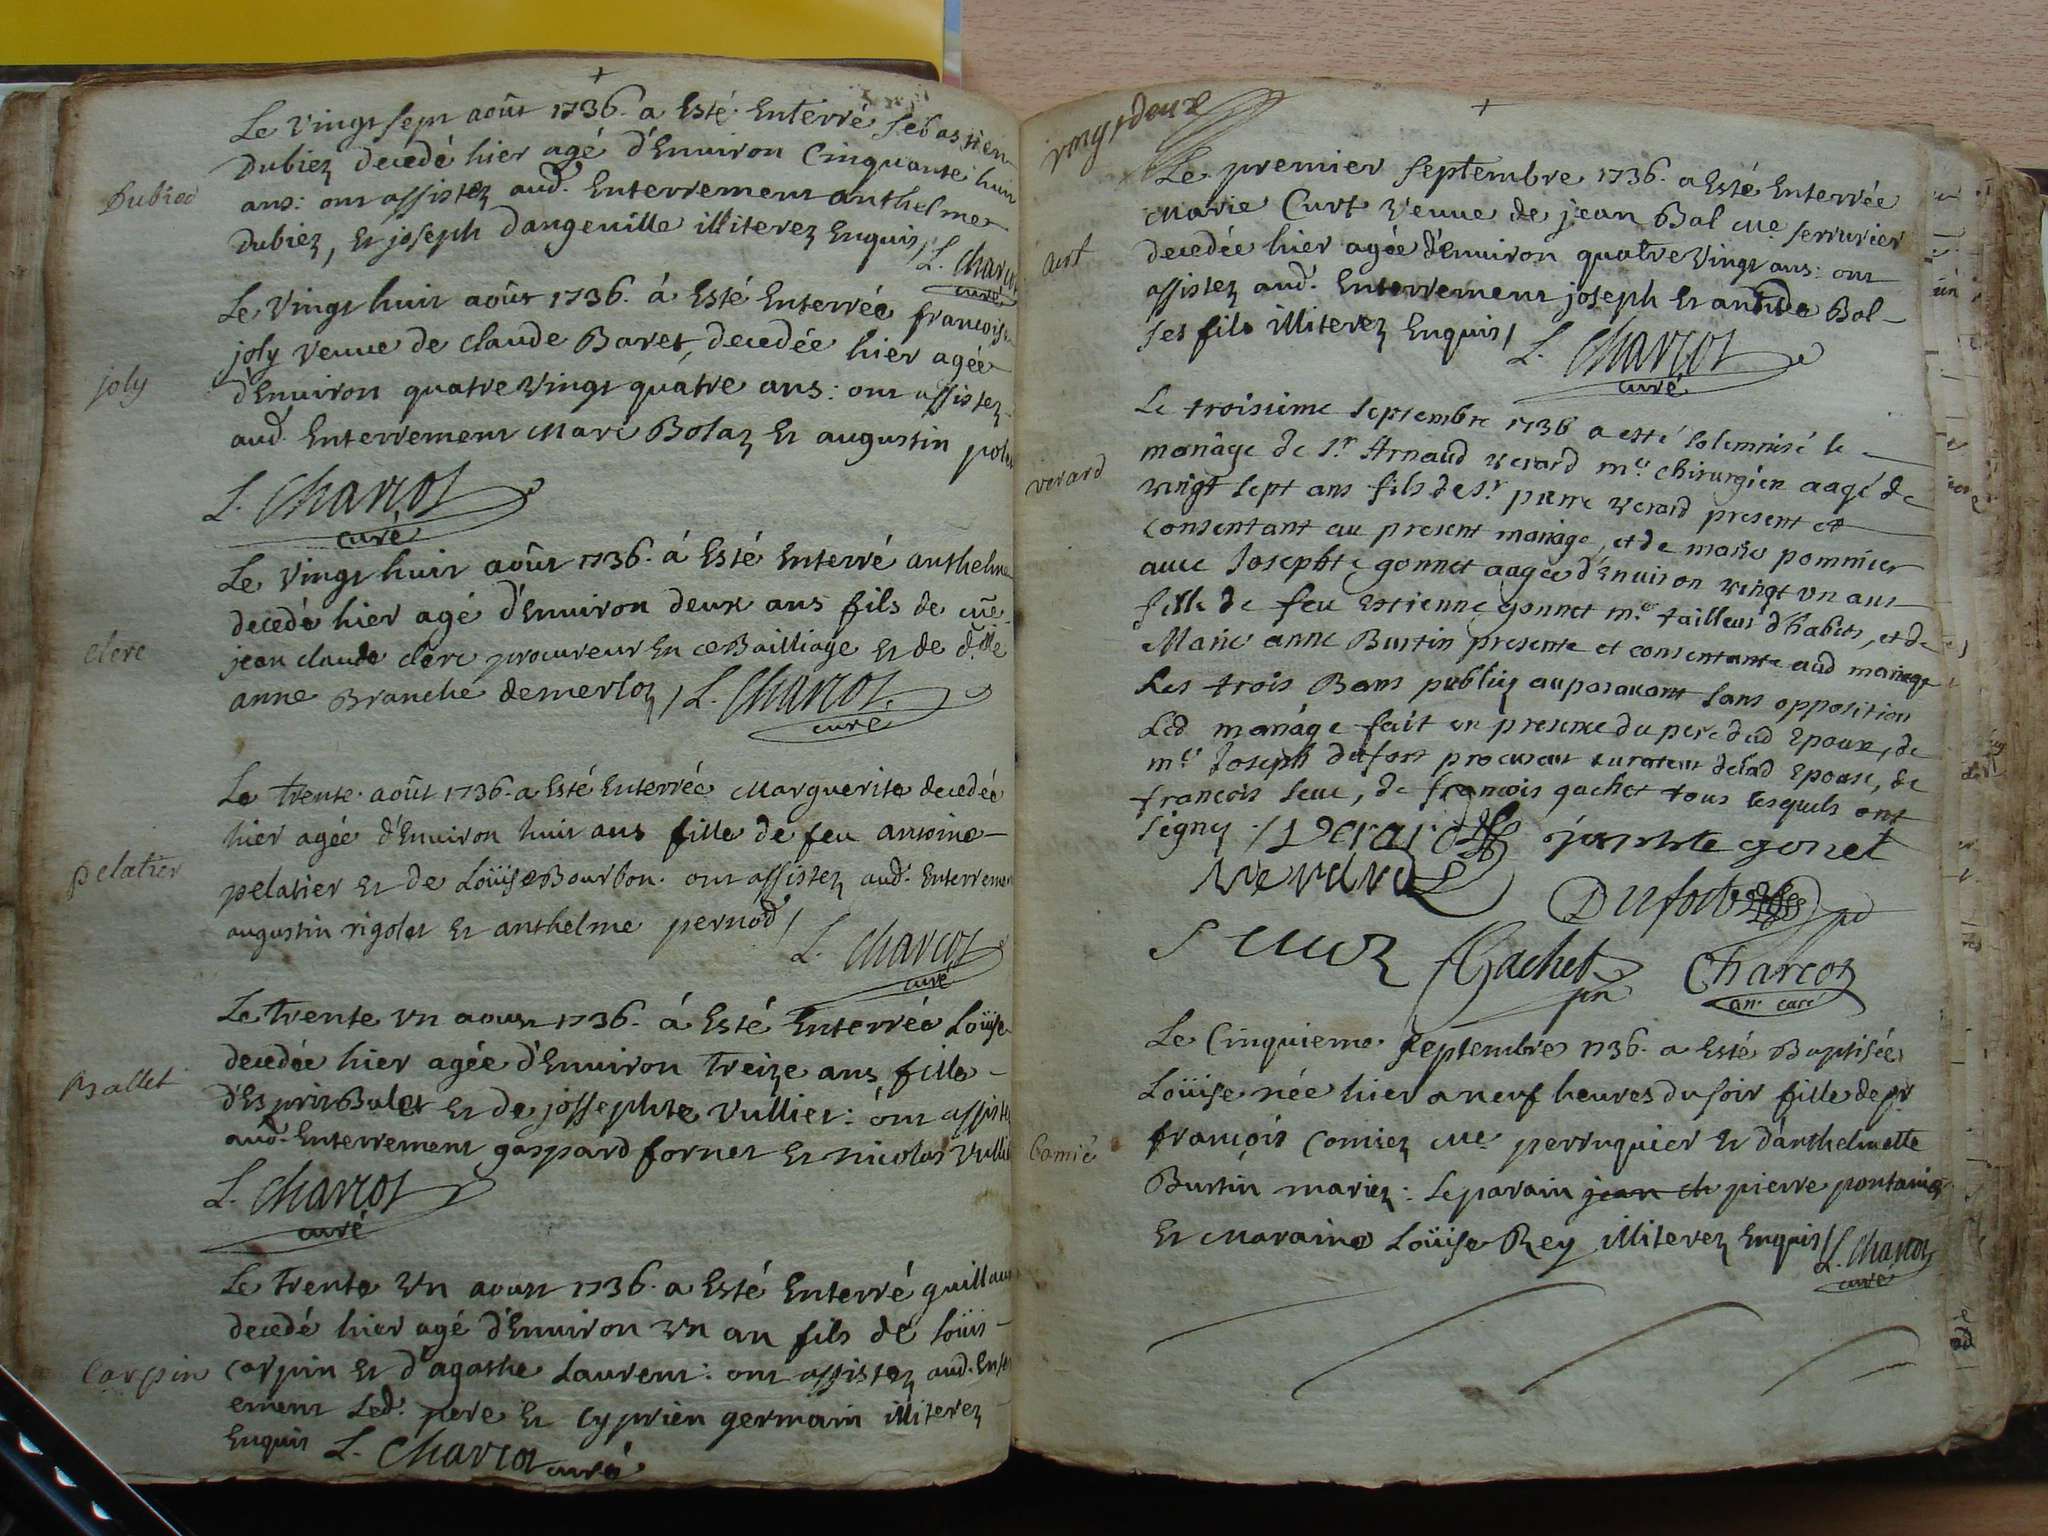 Le vingt sept août 1736. a Esté Enterré Sebastien
Dubiez decedé hier agé d'Environ Cinquante huit
Dubied
ans: ont assistez aud. Enterrement anthelme
Dubiez, Et joseph dangeuille illiterez Enquis /
L. Charcot
curé
Le vingt huit août 1736. á Esté Enterrée françoise
joly veuve de claude Baret, decedée hier agée
joly
d'Environ quatre vingt quatre ans: ont assistez
aud. Enterrement Marc Bolaz Et augustin
L. Charcot
curé
Le vingt huit août 1736. á Esté Enterré anthelme
decedé hier agé d'Environ deux ans fils de me
clerc
jean claude clerc procureur En ce Bailliage Et de dlle
anne Branche demerloz / L. Charcot
curé
Le trente août 1736. a Esté Enterrée Marguerite decedée
hier agée d'Environ huit ans fille de feu antoine
pelatier
pelatier Et de Loüise Bourbon. ont assistez aud. Enterrement
augustin rigolet Et anthelme pernod /
L. Charcot
curé
Le trente un aoust 1736. á Esté Enterrée Loüise
decedée hier agée d'Environ treize ans fille
Ballet
d'Esprit Balet Et de jossephte vullier: ont assistez
aud. Enterrement gaspard fornet Et nicolas
L. Charcot
curé
Le trente un aoust 1736. a Esté Enterré guillaume
decedé hier agé d'Environ un an fils de Loüis
Carpin
carpin Et d'agathe Laurent: ont assistez aud. Enter
ement Led. pere Et Cyprien germain illiterez
Enquis L. Charcot curé
vingt deux
Le premier septembre 1736. a Esté Enterrée
Marie Curt veuve de jean Bal me serrurier
curt
decedée hier agée d'Environ quatre vingt ans: ont
assistez aud. Enterrement joseph Et Bal
ses fils illiterez Enquis /
L. Charcot
curé
Le troisieme septembre 1736 a esté solemnisé le
verard
mariage de Sr. Arnaud verard me. chirurgien aagé de
vingt sept ans fils de Sr. pierre verard present et
consentant au present mariage, et de marie pommier
avec Josephte gonnet aagée d'Environ vingt un ans
fille de feu Estienne gonnet me. tailleur d'habits, et de
Marie anne Burtin presente et consentante aud mariage
Les trois Bans publiez auparavant sans opposition
Led mariage fait en presence du pere dud Epoux, de
me. Joseph dufort procureur curateur delad Epouse, de
francois seuc, de françois gachet tous lesquels ont
signy. / Verard josephte gonet
verard Dufort pd
Gachet Charcot
pn an. curé
Le Cinquieme Septembre 1736. a Esté Baptisée
Loüise née hier a neuf heures du soir fille de pr
Comié
françois comiez me perruquier Et d'anthelmette
Burtin mariez: Le parain jean cl pierre pontanier
Et Maraine Loüise Rey illiterez Enquis /
L. Charcot
curé